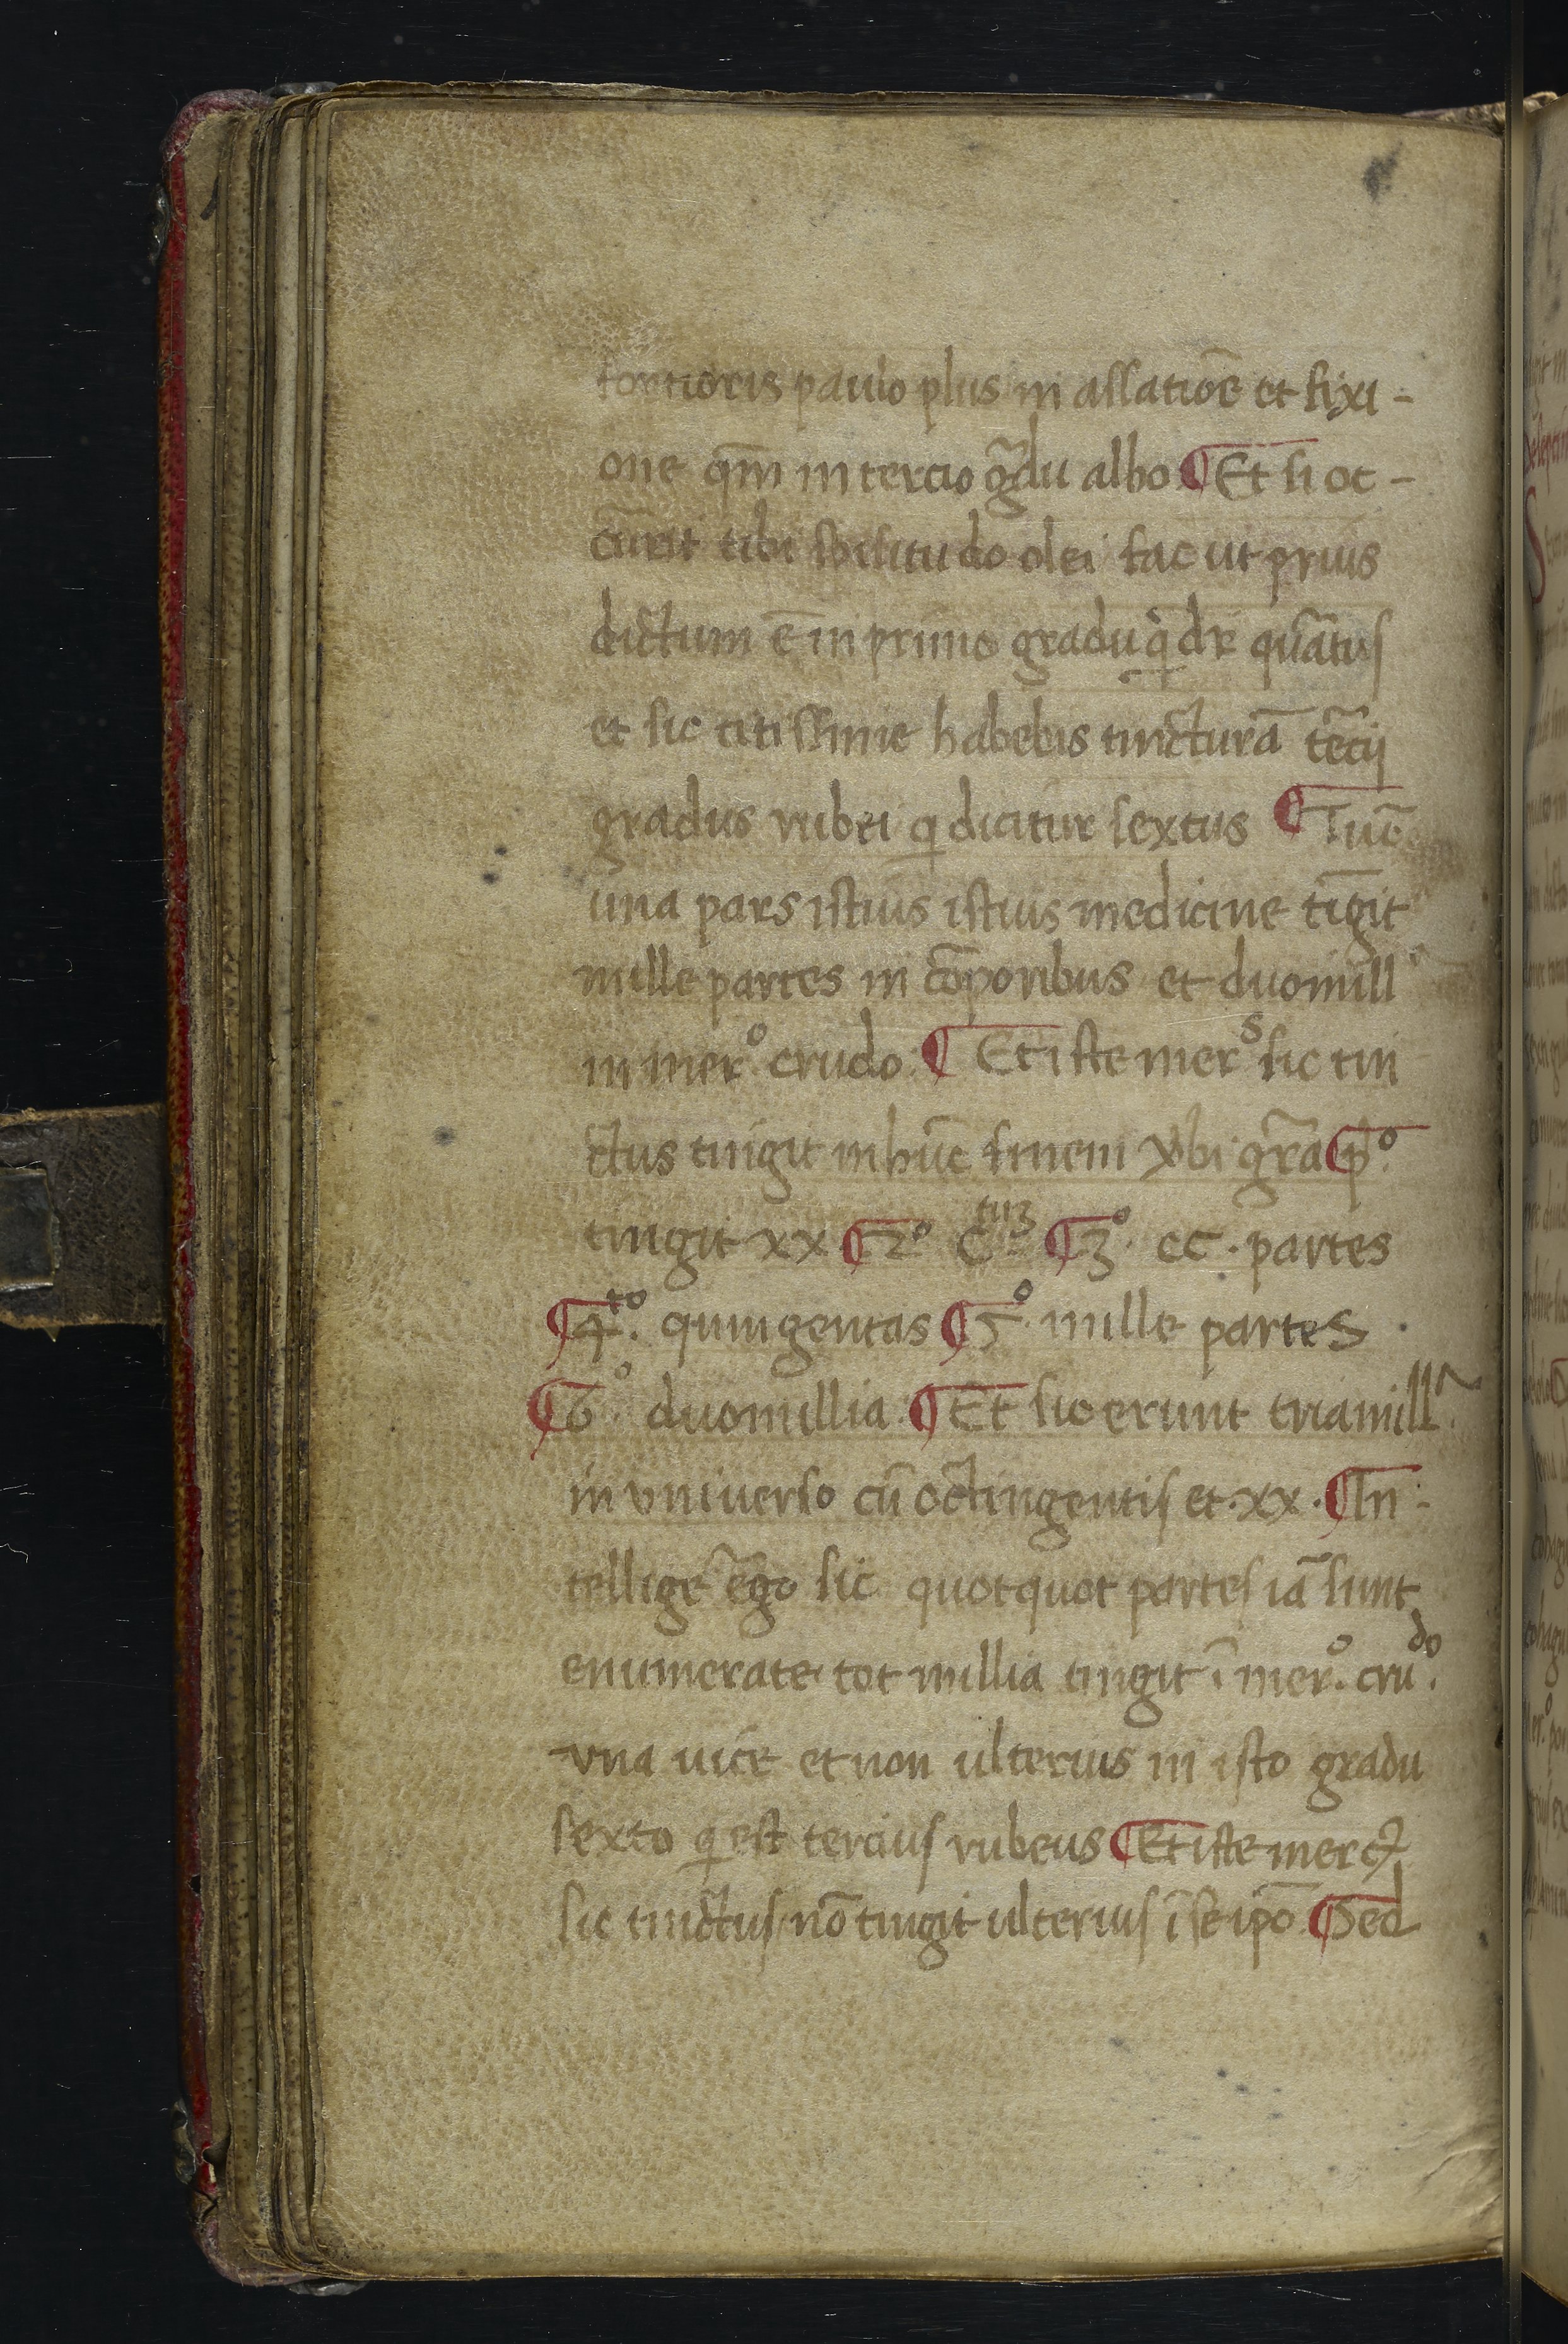 fortioris paulo plus in assatiōe et fixi-
one qm̄ in tercio gͣdu albo ¶ Et si oc-
cūrit tibi spissitudo olei fac ut prius
dictum ē in primo gradu q̇ dr̄ quātus
et sic citissime habebis tincturā tēcij
gradus rubei q dicitur sextus ¶ Tūc
una pars istius istius medicine tīgit
mille partes in cōporibus et duomillᵃ
in merº. crudo. ¶ Et iste merˢ sic tin
ctus tingit in hūc finem vͦbi grā ¶ pº.
tingit xx ¶ 2º Cᵗᵘᵌ ¶ 3º. cc. partes
¶ 4ᵗº. quingentas ¶ 5º. mille partes.
¶ 6º. duomillia. ¶ Et sic erunt triamillᵃ.
in vniuerso cū octingentis et .xx. ¶ In-
tellige ēgo sic quotquot partes iā sunt
enumerate tot millia tingit ī merº. cruᵈº.
vna uice et non ulterius in isto gradu
sexto q est tercius rubeus ¶ Et iste mercꝰ
sic tinctus nō tingit ulterius ī se ipō ¶ Sed